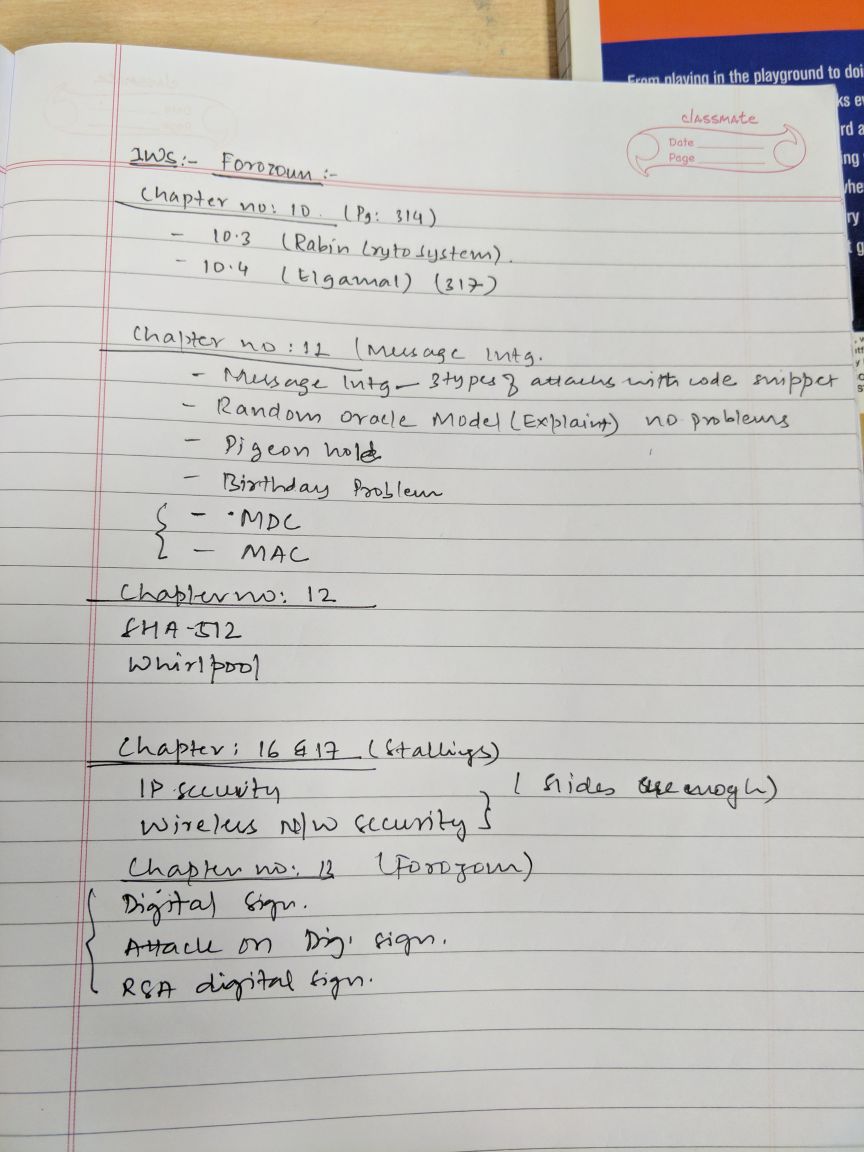 From playing in the playground to doi
ks e
rd a
ing
whe
ry
t g
classmate
Date
Page
IWS:- Forozoun :-
Chapter no: 10. (Pg: 314)
- 10.3 (Rabin Cryto System).
- 10.4 (Elgamal) (317)
Chapter no: 11 (Message Intg.
- Message Intg - 3 types of attacks with code snippet
- Random oracle Model (Explain) no problems
- Pigeon hole
- Birthday Problem
{ - MDC
- MAC
Chapter no: 12
SHA-512
Whirlpool
Chapter: 16 & 17 (Stallings)
IP security } ( slides are enogh)
Wireless N/W security
Chapter no: 13 (Forozoun)
{ Digital Sign.
Attack on Dig. sign.
RSA digital sign.